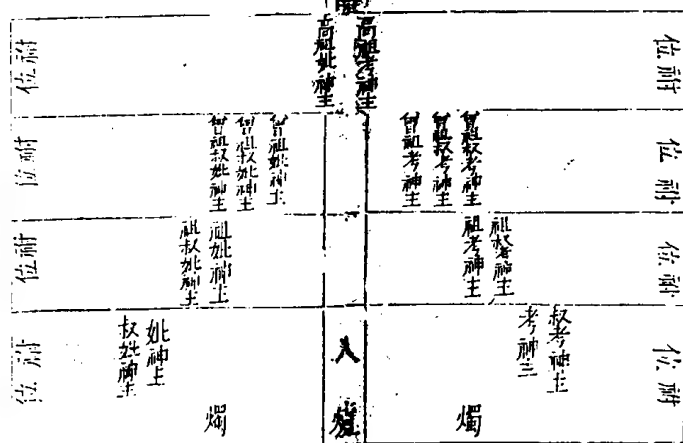 祔位
高祖考神主
高祖妣神主
祔位
祔位
曾祖叔考神主
曾祖叔考神主
曾祖考神主
曾祖妣神主
曾祖叔妣神主
曾祖叔妣神主
祔位
祔位
祖叔考神主
祖考神主
祖妣神主
祖叔妣神主
祔位
祔位
叔考神主
考神主
妣神主
叔妣神主
祔位
燭
燭